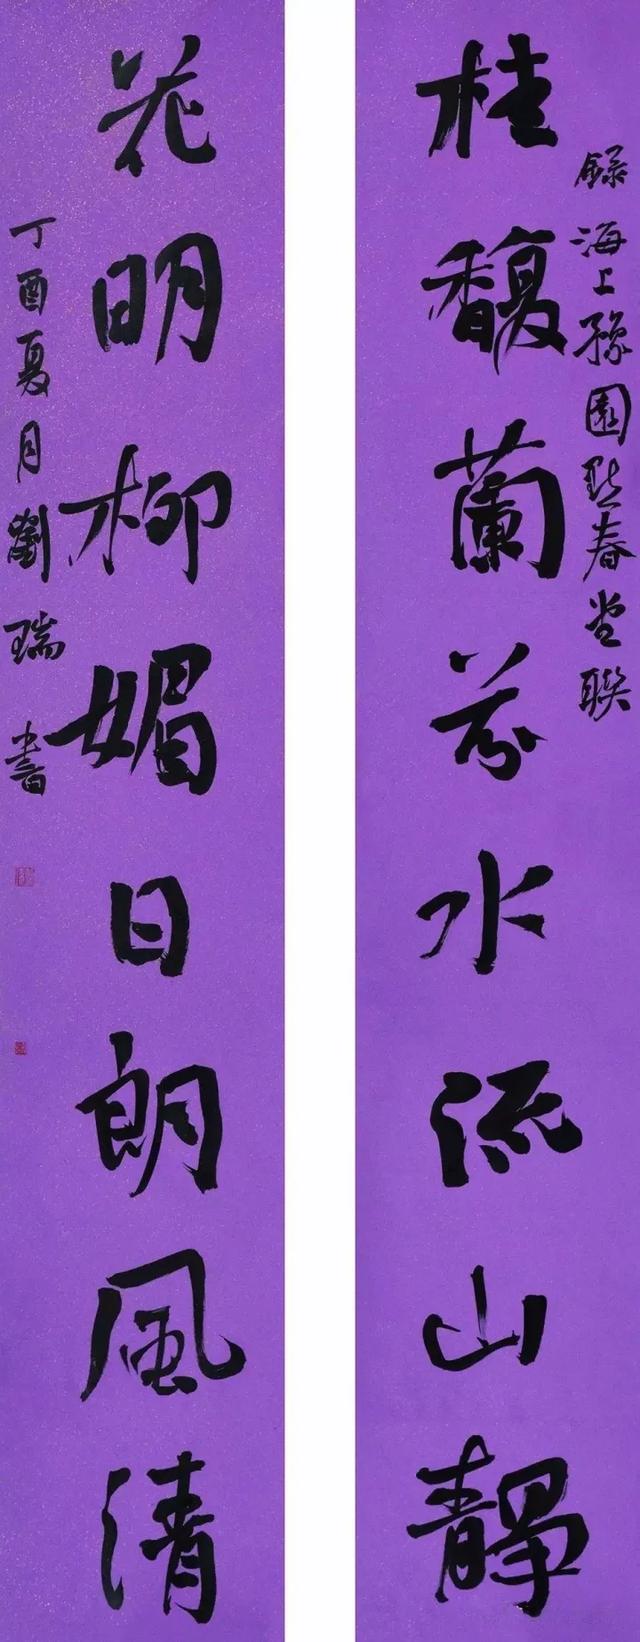 桂馥蘭芬水流山靜
錄海上豫園點春堂聯
花明柳媚日朗風清
丁酉夏月劉瑞書